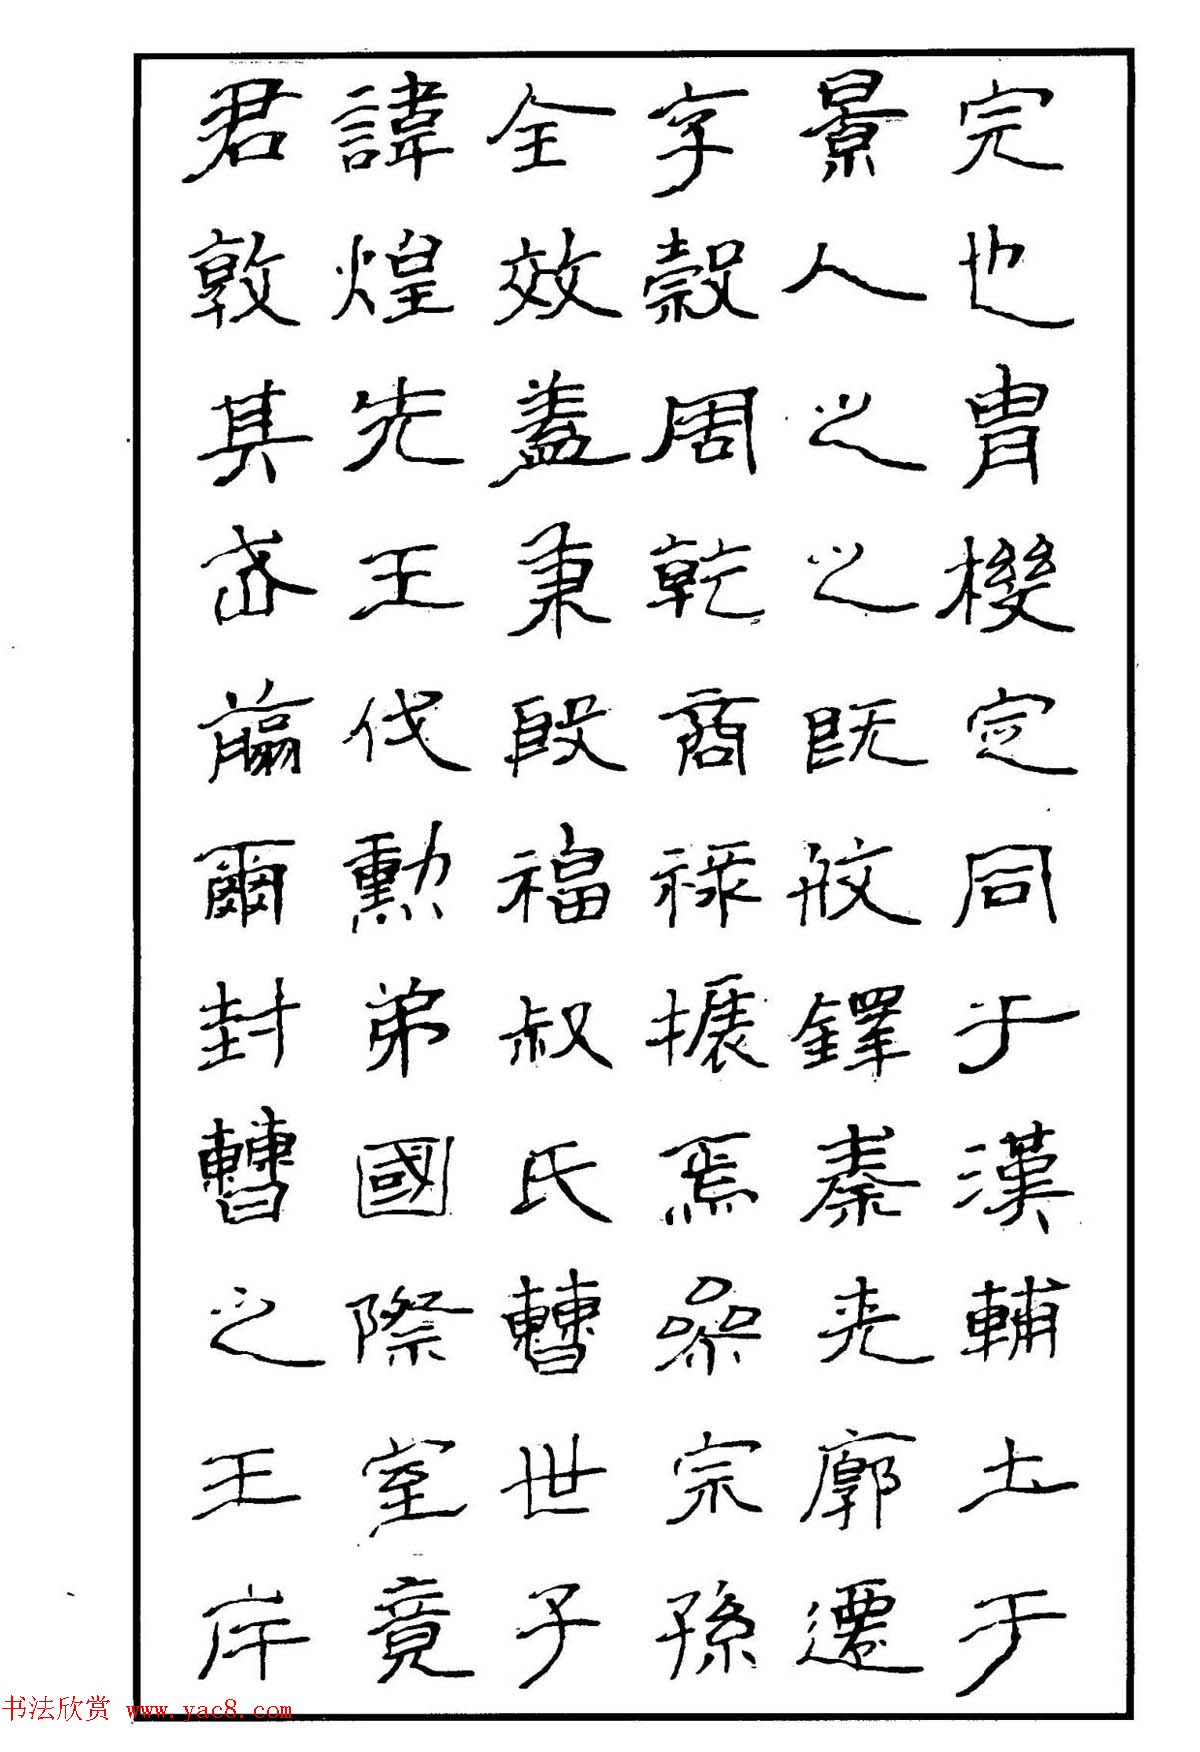 君諱全字景完
敦煌效穀人也
其先蓋周之冑
武王秉乾之機
翦伐殷商既定
爾勳福祿攸同
封弟叔振鐸于
曹國氏焉秦漢
之際曹參夾輔
王室世宗廓土
斥竟子孫遷于
书法欣赏 www.yac8.com